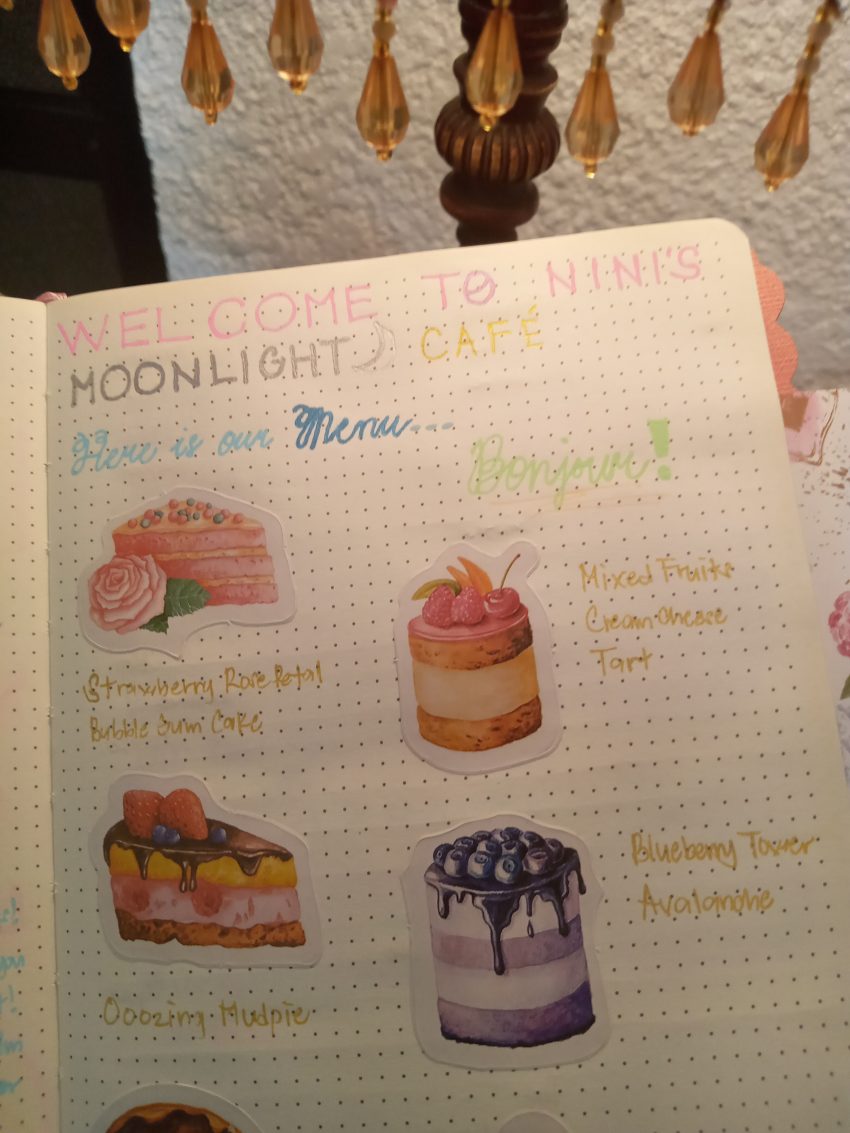 WELCOME TO NINI'S
MOONLIGHT CAFÉ
Here is our Menu---
Bonjour!
Strawberry Rose Petal
Bubble Gum Cake
Mixed Fruits
Cream Cheese
Tart
Ooozing Mudpie
Blueberry Tower
Avalanche
you